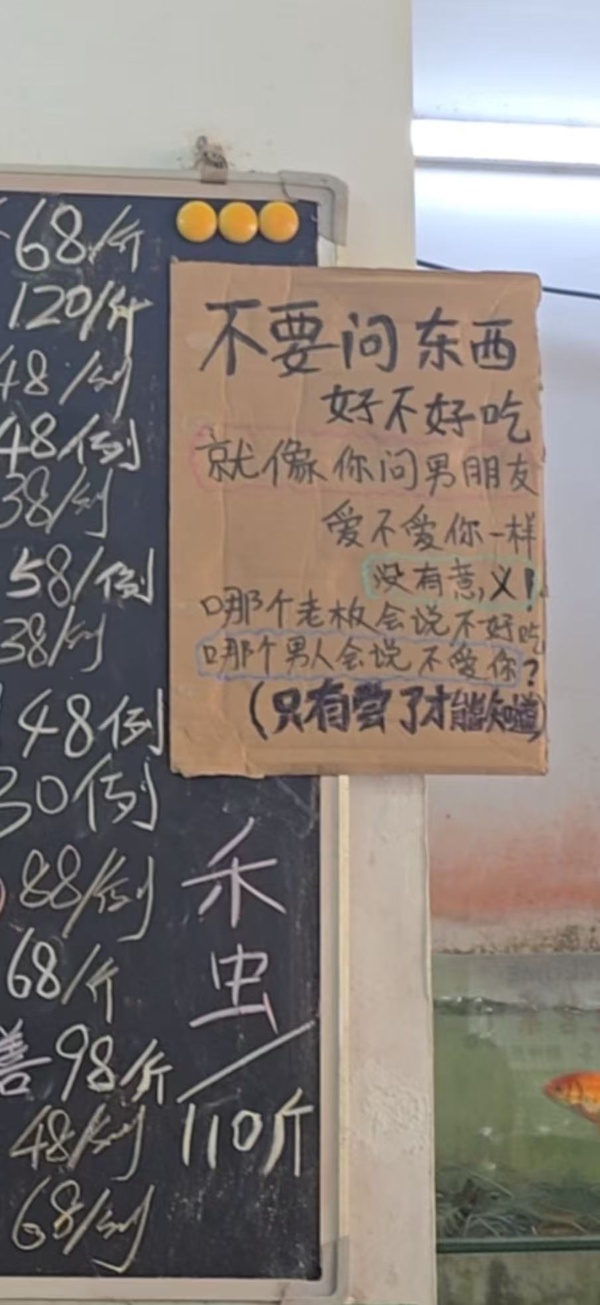 68/斤
120/斤
48/例
48例
38/例
58/例
38/例
48例
30例
88/例
68/斤
98斤
48/例
68/例
不要问东西
好不好吃
就像你问男朋友
爱不爱你一样
没有意义!
哪个老板会说不好吃
哪个男人会说不爱你?
(只有尝了才能知道)
禾
虫
/
110斤